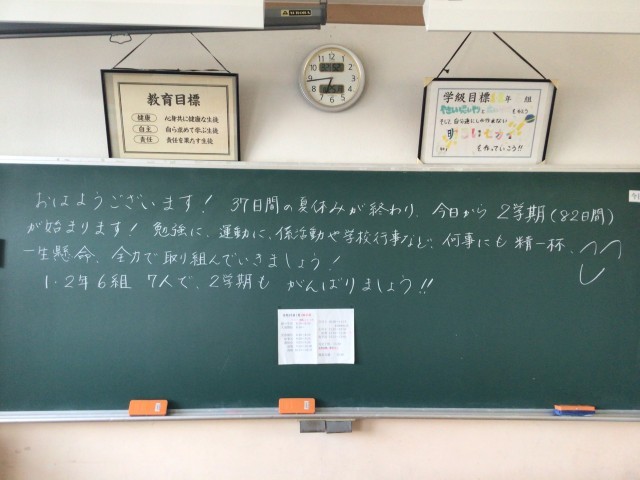 教育目標
健康 心身共に健康な生徒
自主 自ら求めて学ぶ生徒
責任 責任を果たす生徒
学級目標
年 組
も作っていこう!!
おはようございます! 37日間の夏休みが終わり、今日から2学期(82日間)
が始まります! 勉強に、運動に、係活動や学校行事など、何事にも精一杯、
一生懸命、全力で取り組んでいきましょう!
1・2年6組 7人で、2学期も がんばりましょう!!